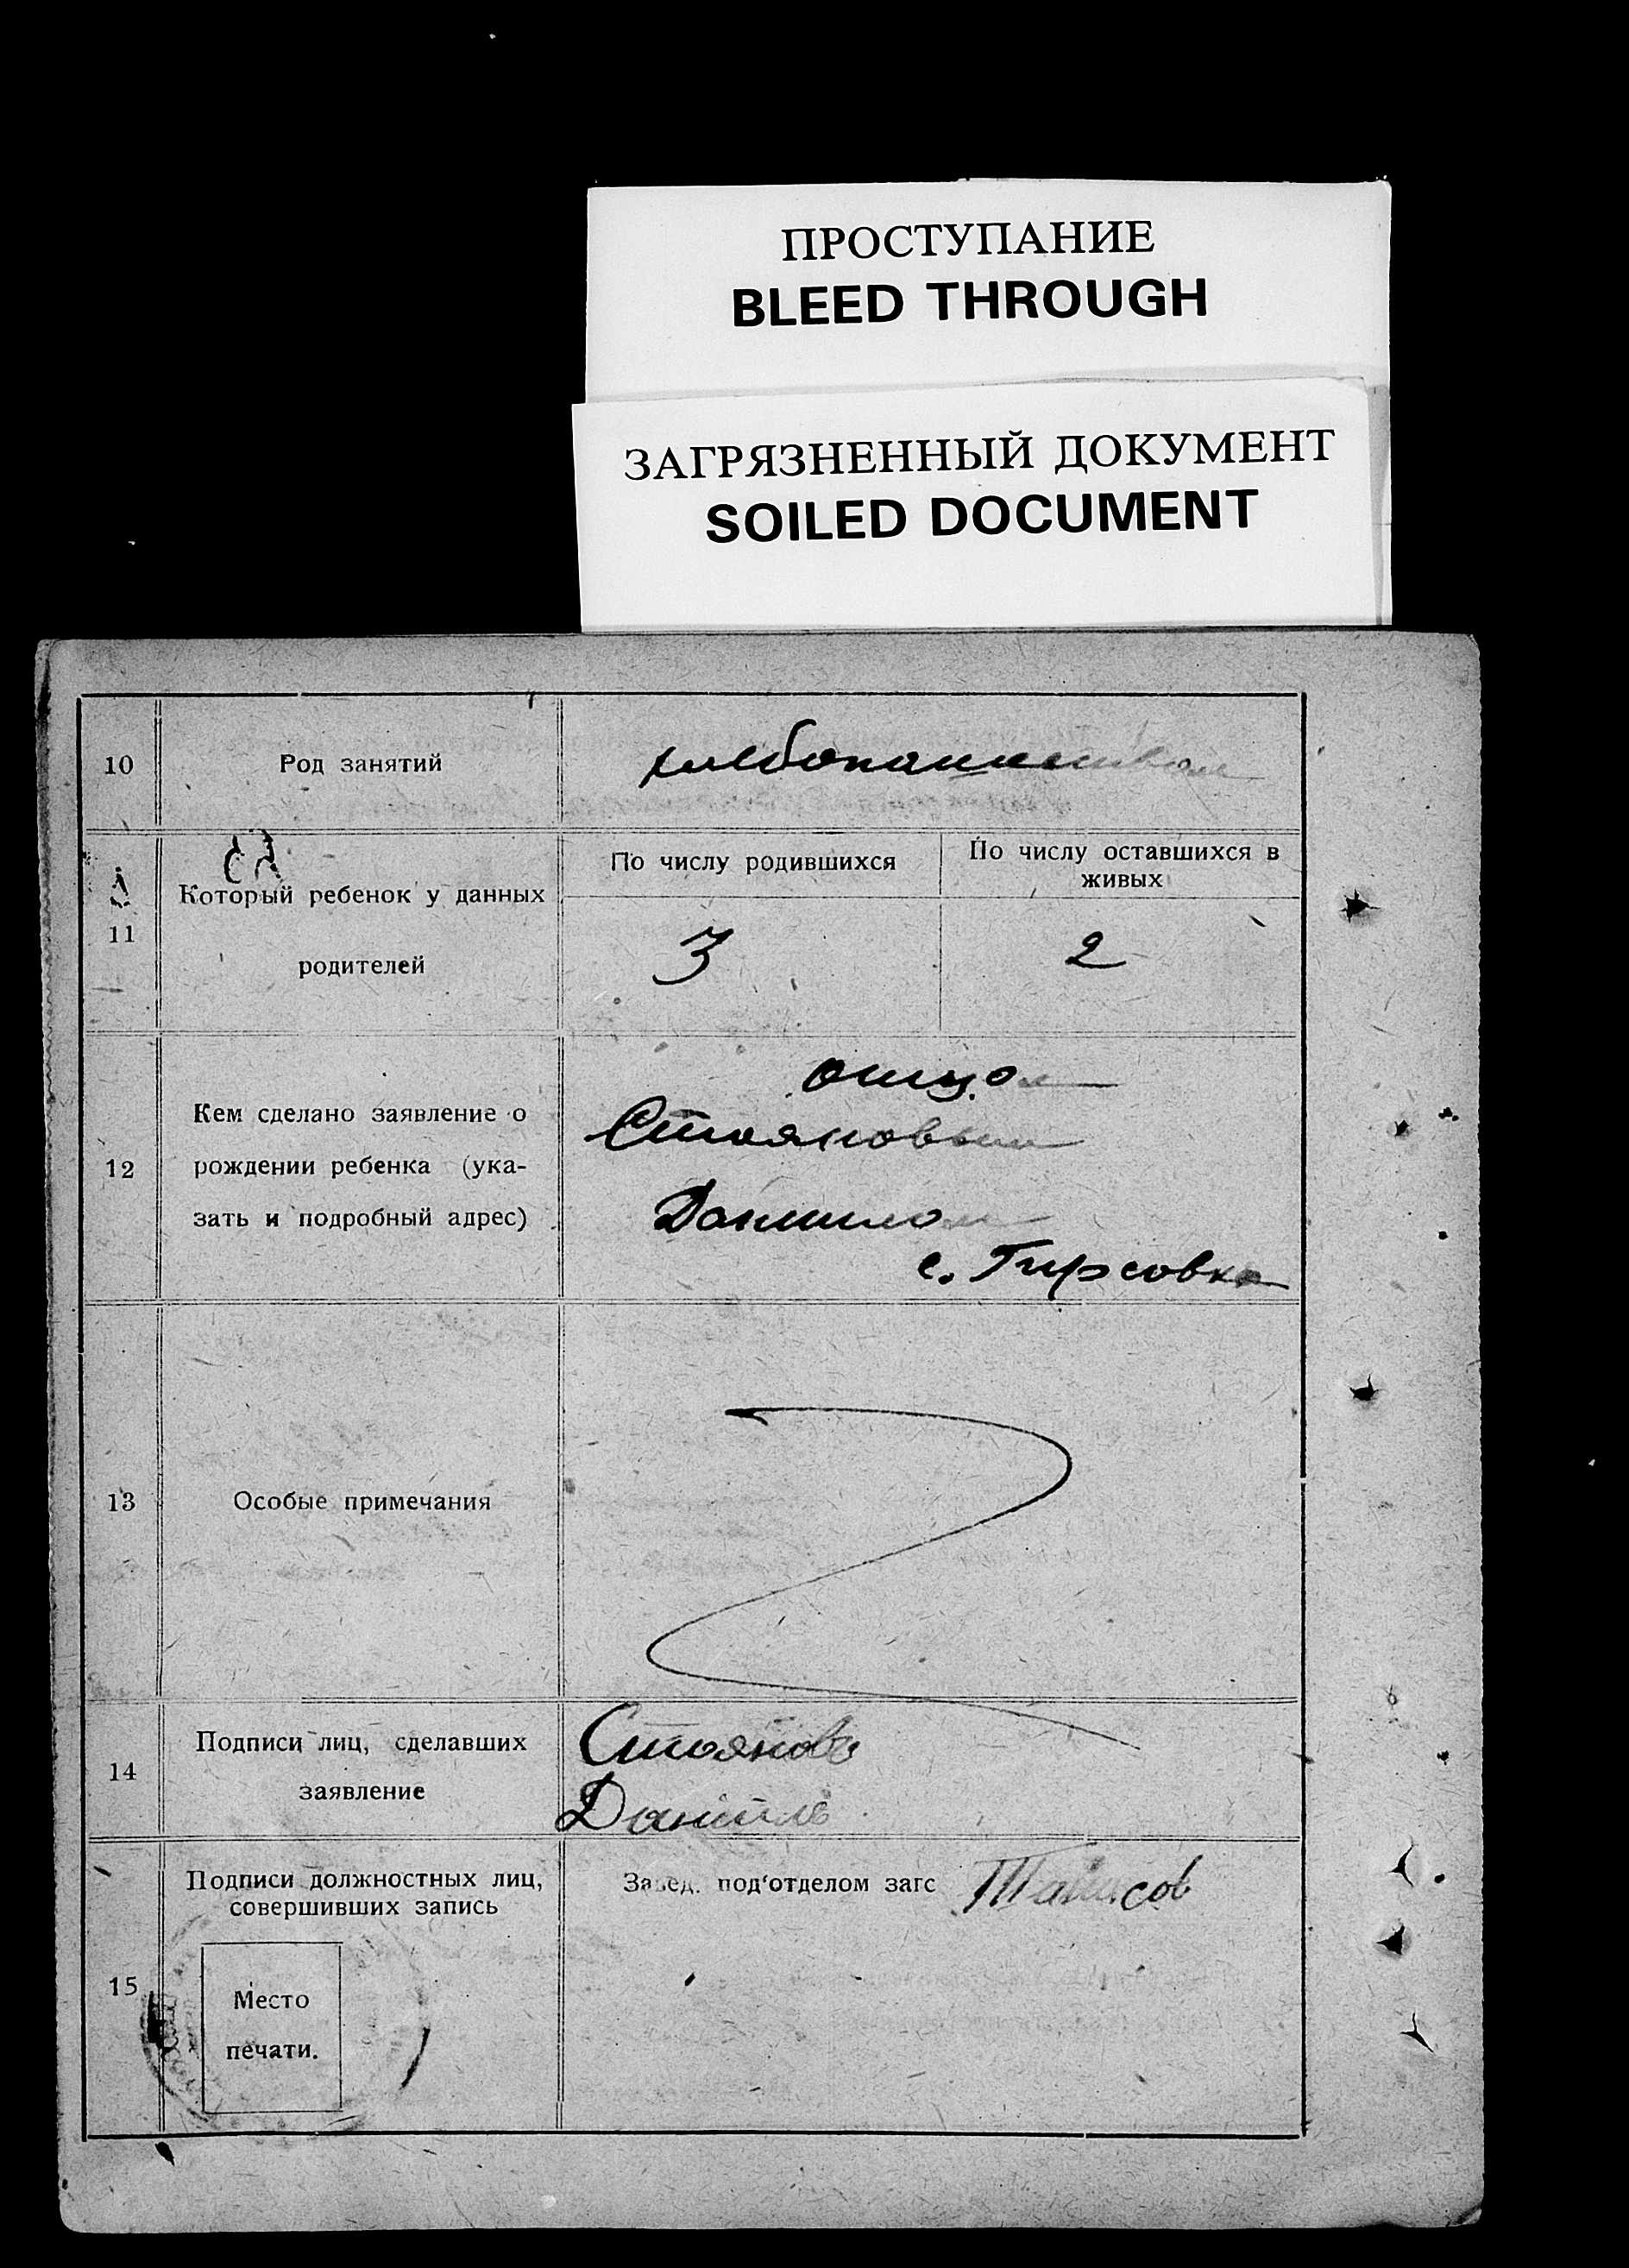 ПРОСТУПАНИЕ
BLEED THROUGH
ЗАГРЯЗНЕННЫЙ ДОКУМЕНТ
SOILED DOCUMENT
10 Род занятий хлебопашеством
11 Который ребенок у данных родителей
По числу родившихся
По числу оставшихся в живых
3 2
12 Кем сделано заявление о
рождении ребенка (ука-
зать и подробный адрес)
отцом
Стояновым
Данилом
с. Гирсовка
13 Особые примечания
14 Подписи лиц, сделавших
заявление
Стоянов
Данил
15 Подписи должностных лиц,
совершивших запись
Завед. под'отделом загс
Место
печати.